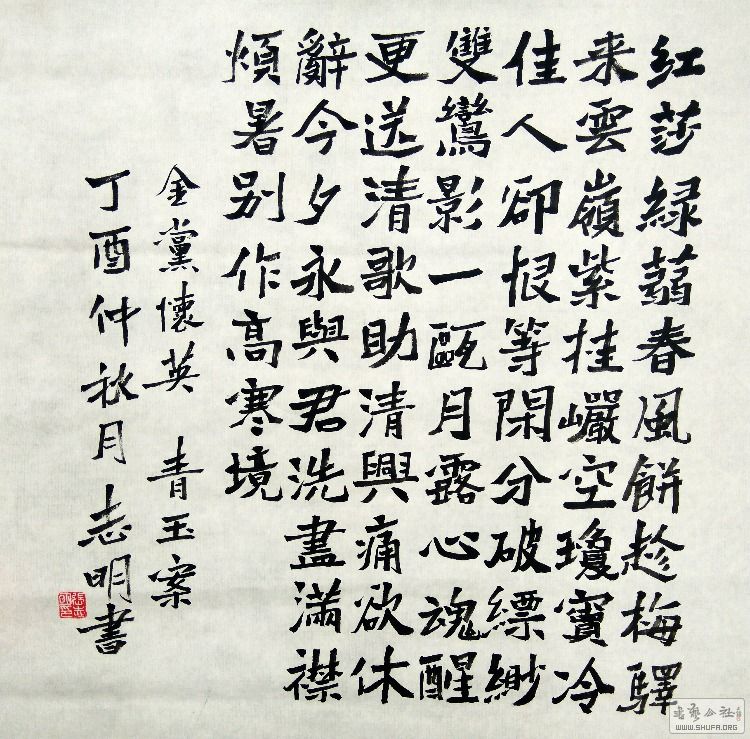 红莎緑蒻春風餅趁梅驛
来雲嶺紫桂巗空瓊竇冷
佳人卻恨等閑分破縹緲
雙鸞影一甌月露心魂醒
更送清歌助清興痛欲休
辭今夕永與君洗盡滿襟
煩暑别作高寒境
金黨懷英 青玉案
丁酉仲秋月 志明書
WWW.SHUFA.ORG